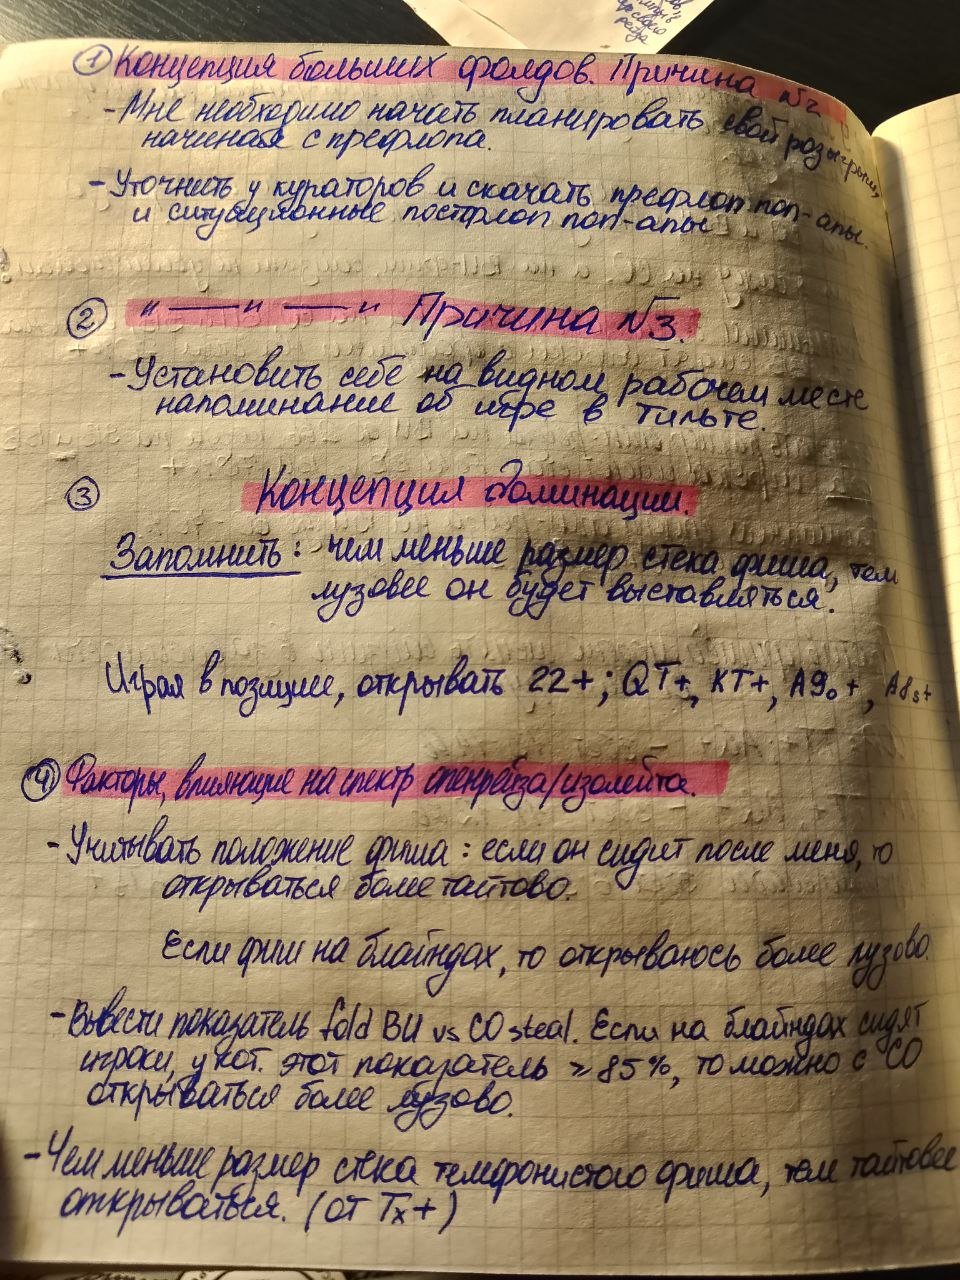 ① Концепция больших фолдов. Причина №2
- Мне необходимо начать планировать свой розыгрыш,
начиная с префлопа.
- Уточнить у кураторов и скачать префлоп поп-апы.
и ситуационные постфлоп поп-апы
② "——" —— " Причина №3.
- Установить себе на видном рабочем месте
напоминание об игре в тильте.
③ Концепция доминации.
Запомнить: чем меньше размер стека фиша, тем
лузовее он будет выставляться.
Играя в позиции, открывать 22+; QT+, KT+, A9o+, A8s+
④ Факторы, влияющие на спектр опенрейза/изолейта.
- Учитывать положение фиша: если он сидит после меня, то
открываться более тайтово.
Если фиш на блайндах, то открываюсь более лузово.
- Вывести показатель fold BU vs CO steal. Если на блайндах сидят
игроки, у кот. этот показатель ≥85%, то можно с CO
открываться более лузово.
- Чем меньше размер стека фиша, тем тайтовее
открываться. (от Tx+)